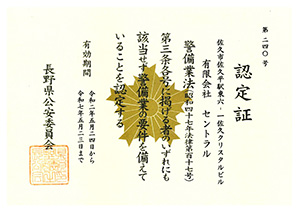 第二四〇号
認定証
佐久市佐久平駅東六‐一佐久クリスタルビル
有限会社 セントラル
警備業法(昭和四十七年法律第百十七号)
第三条各号に掲げる者のいずれにも
該当せず警備業の要件を備えて
いることを認定する
有効期間
令和二年五月二四日から
令和七年五月二三日まで
長野県公安委員会